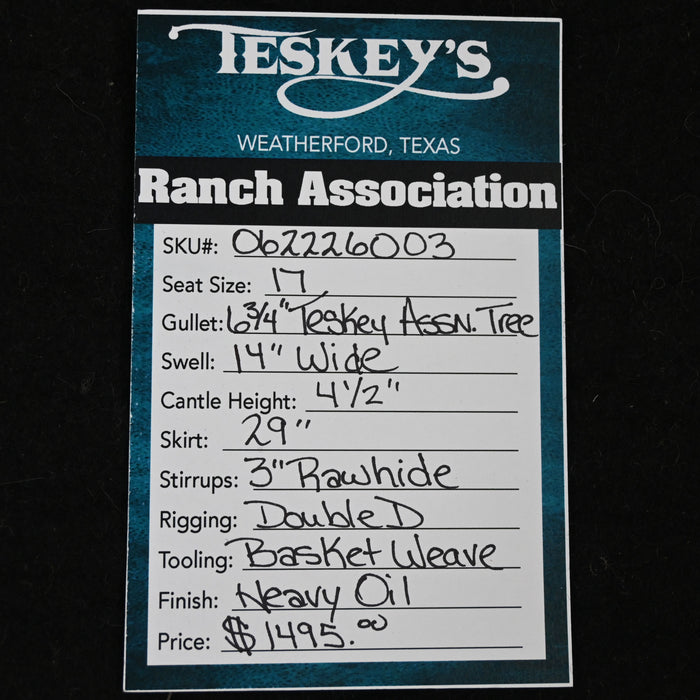 TESKEY'S
WEATHERFORD, TEXAS
Ranch Association
SKU#: 062226003
Seat Size: 17
Gullet: 6 3/4" Teskey Assn. Tree
Swell: 14" Wide
Cantle Height: 4 1/2"
Skirt: 29"
Stirrups: 3" Rawhide
Rigging: Double D
Tooling: Basket Weave
Finish: Heavy Oil
Price: $1495.00